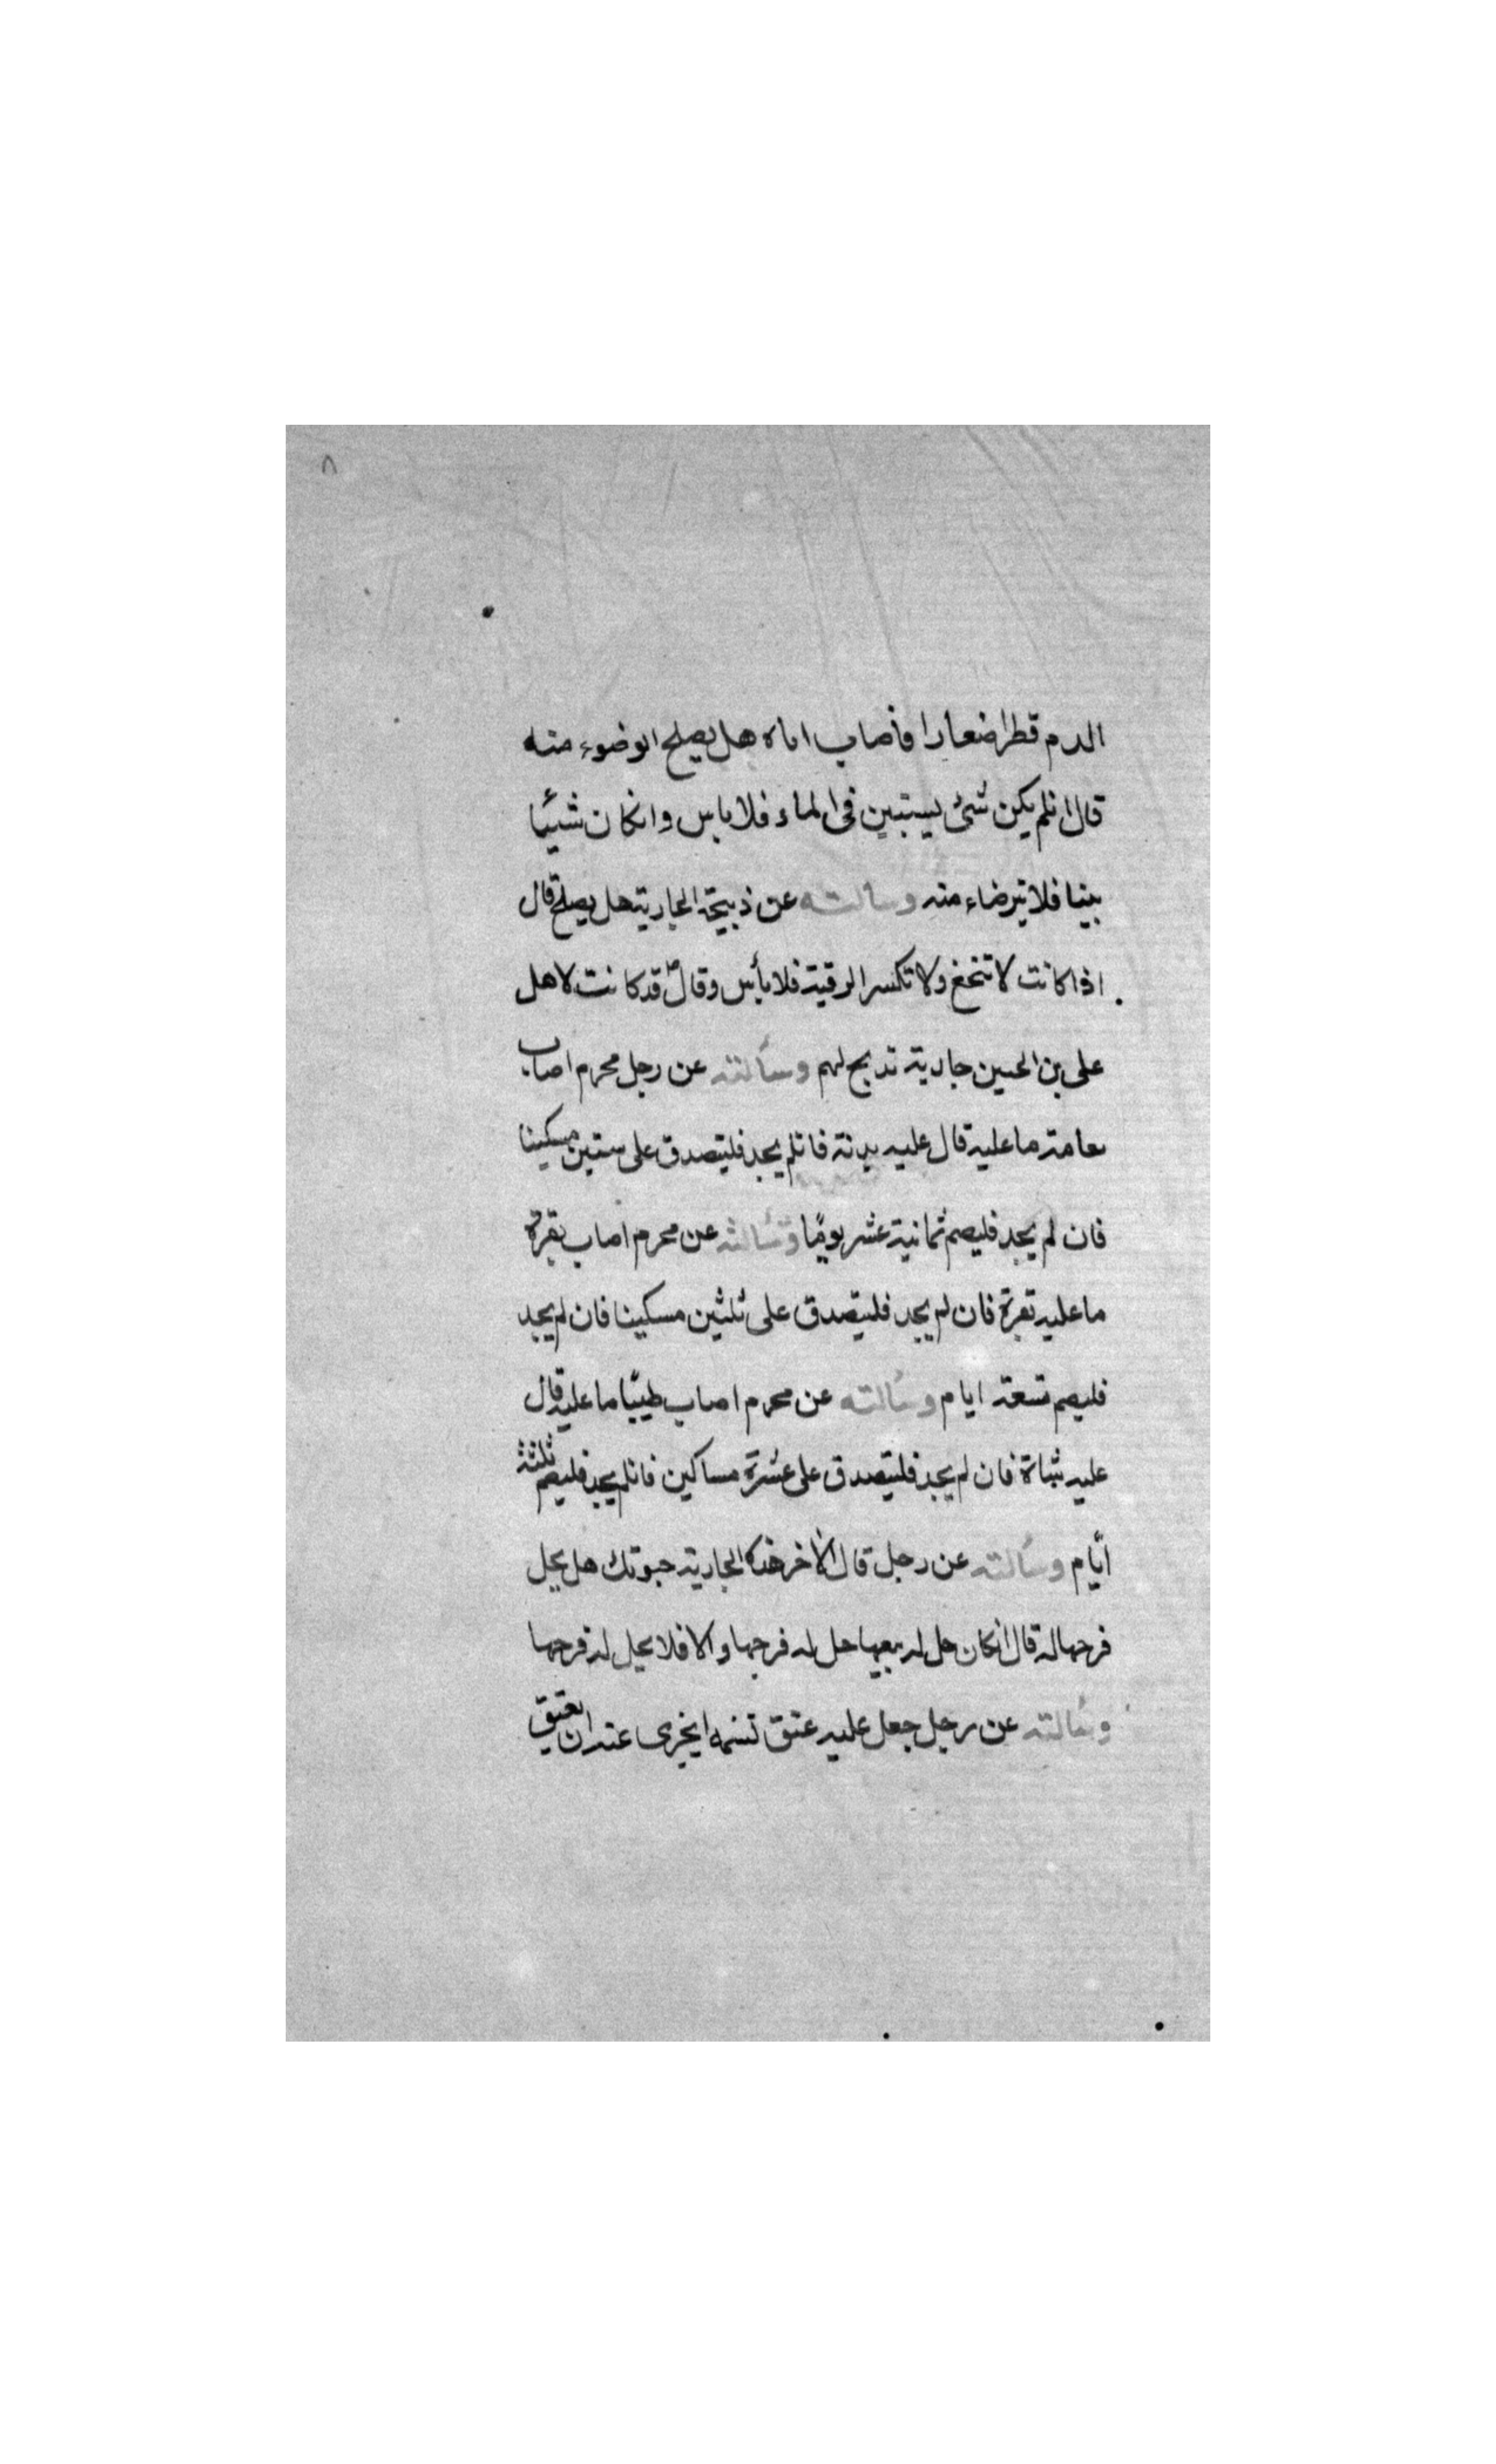 ٨
الدم قطرا ضعارا فأصاب اناه هل يصلح الوضوء منه
قال انلم يكن شئ يستبين فى الماء فلا باس وانكان شيئا
بينا فلا تيرضاء منه وسألته عن ذبيحة الجارية هل يصلح قال
اذا كانت لا تنخع ولا تكسر الرقبة فلا بأس وقال قد كانت لاهل
على بن الحسين جارية تذبح لهم وسألته عن رجل محرم اصاب
نعامة ما عليه قال عليه بدنة فانلم يجد فليتصدق على ستين مسكينا
فان لم يجد فليصم ثمانية عشر يومًا وسألته عن محرم اصاب بقرة
ما عليه بقرة فان لم يجد فليتصدق على ثلثين مسكينا فان لم يجد
فليصم تسعة ايام وسألته عن محرم اصاب ظبيًا ما عليه قال
عليه شاة فان لم يجد فليتصدق على عشرة مساكين فانلم يجد فليصم ثلثة
ايّام وسألته عن رجل قال لاخر هذه الجارية حبوتك هل يحل
فرجها له قال انكان حل له بيعها حل له فرجها والا فلا يحل له فرجها
وسألته عن رجل جعل عليه عتق نسمة ايجزى عنه ان يعتق